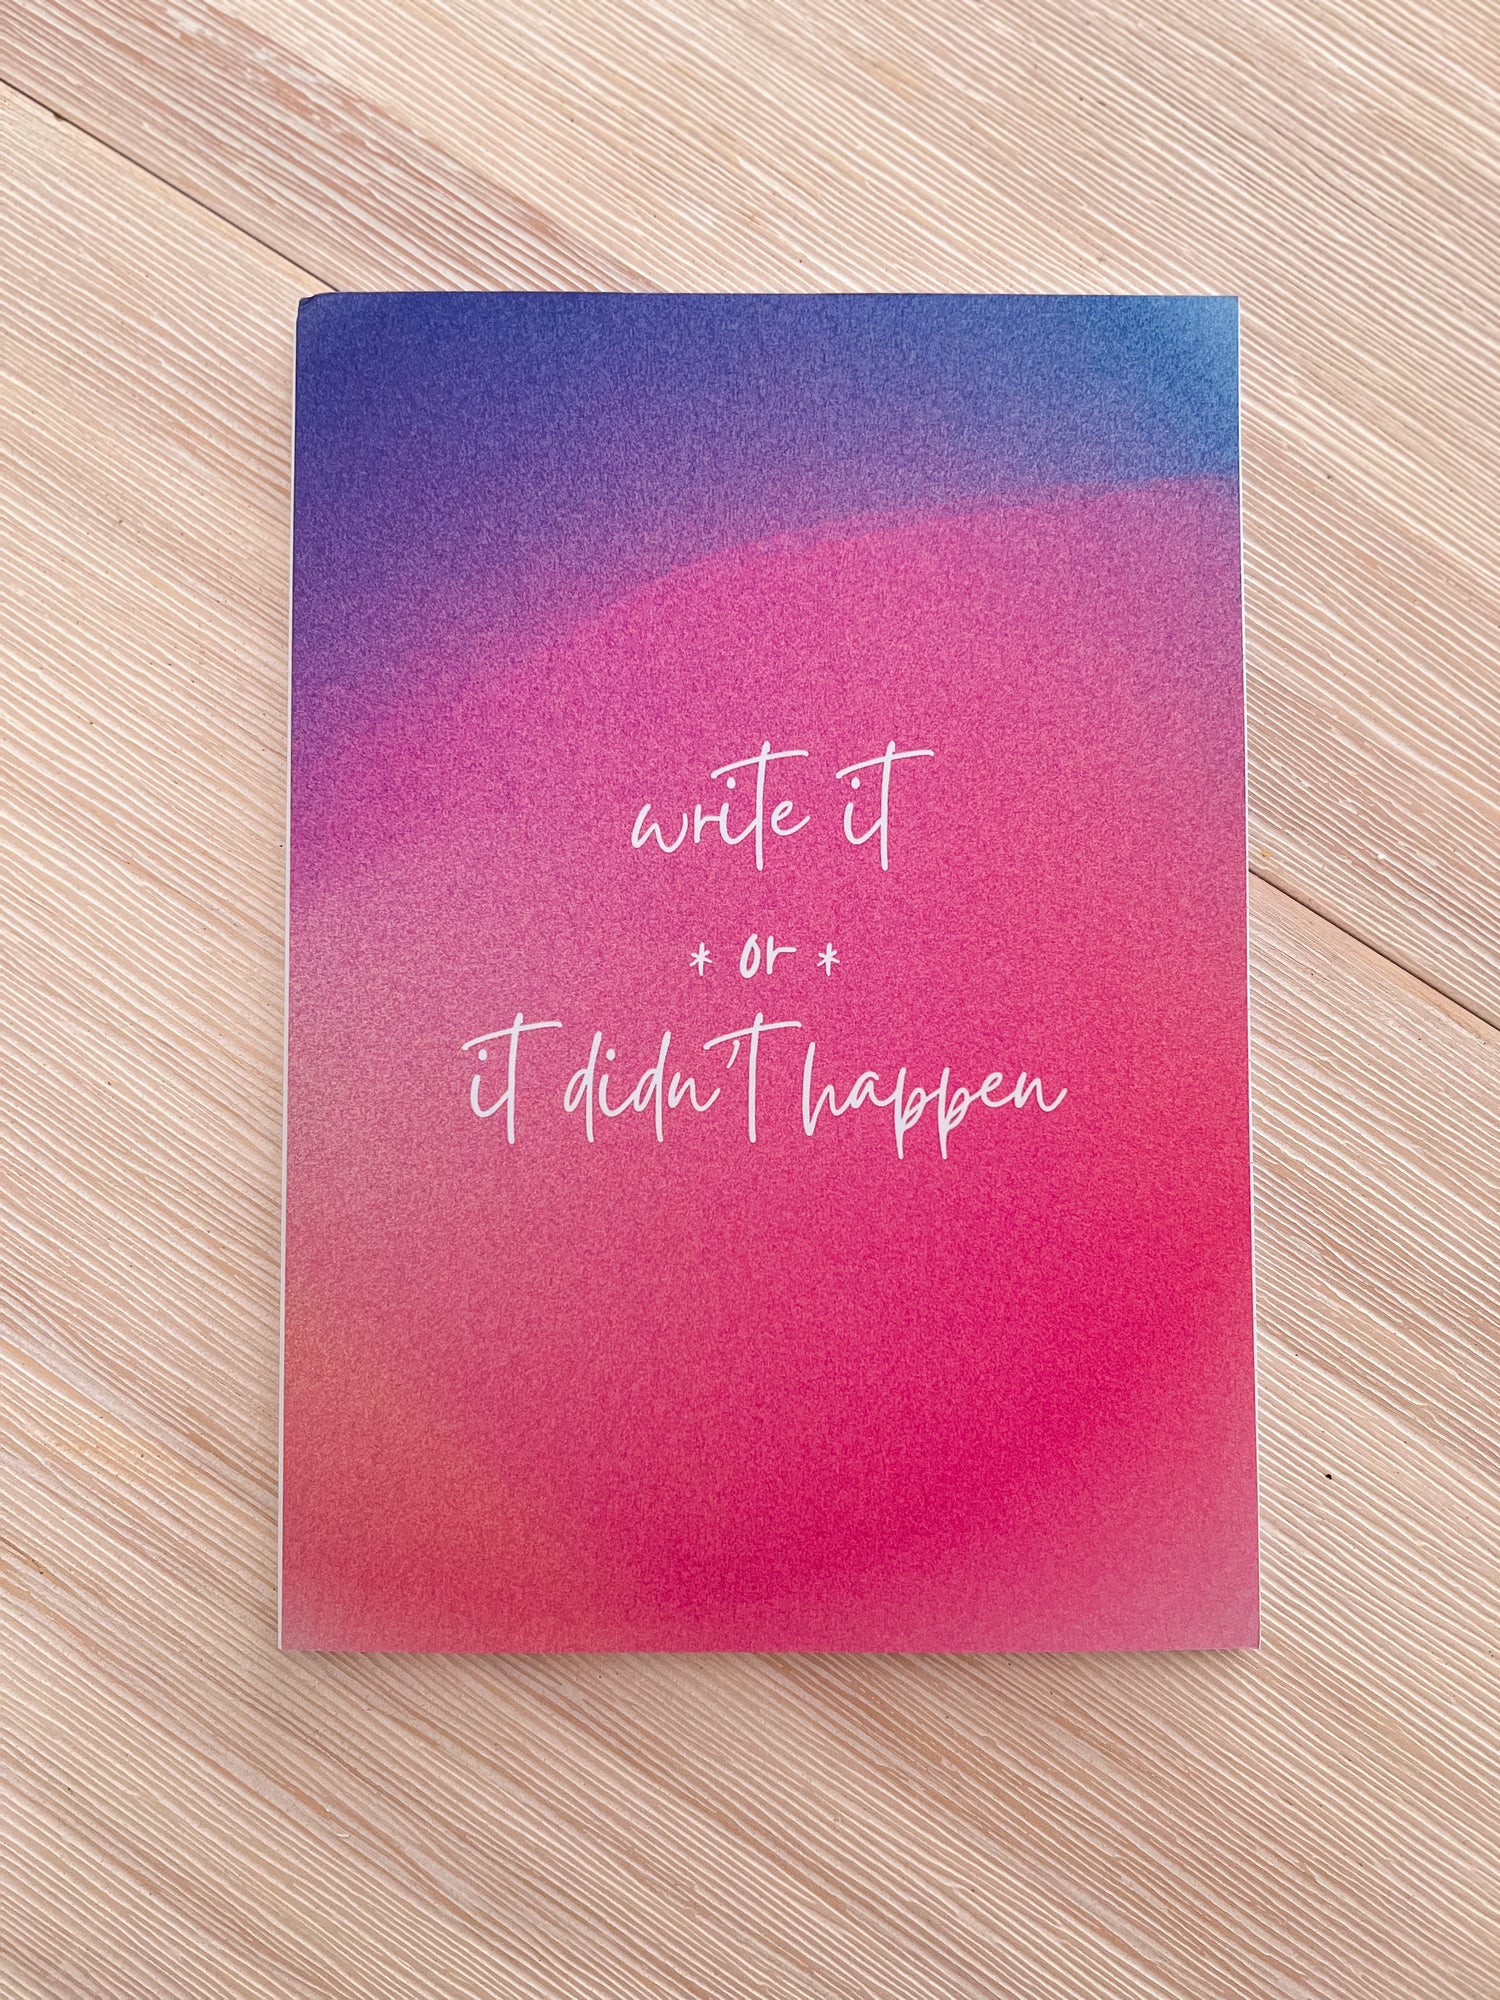 write it
* or *
it didn't happen